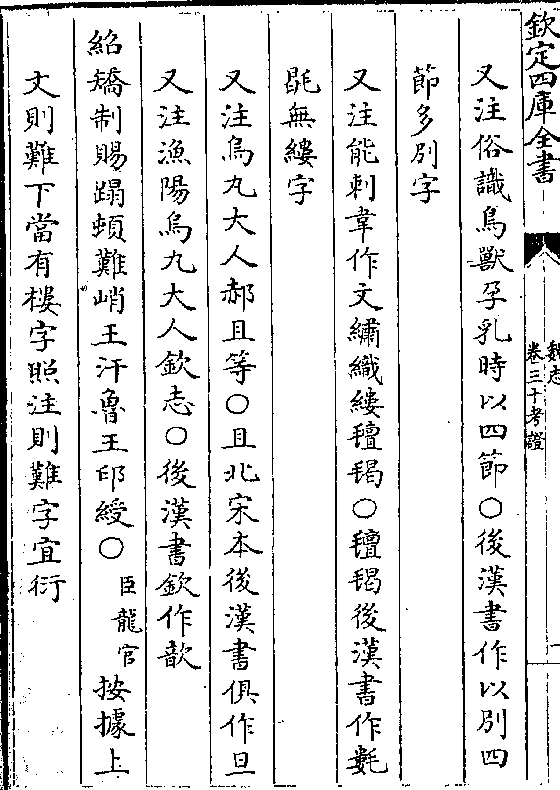 欽定四庫全書
魏志
卷三十考證
又注俗識鳥獸孕乳時以四節○後漢書作以別四
節多別字
又注能刺韋作文繡織縷氊𣮉○氊𣮉後漢書作㲲
毼無縷字
又注烏丸大人郝且等○且北宋本後漢書俱作旦
又注漁陽烏丸大人欽志○後漢書欽作歆
紹矯制賜蹋頓難峭王汗魯王印綬○臣龍官按據上
文則難下當有樓字照注則難字宜衍